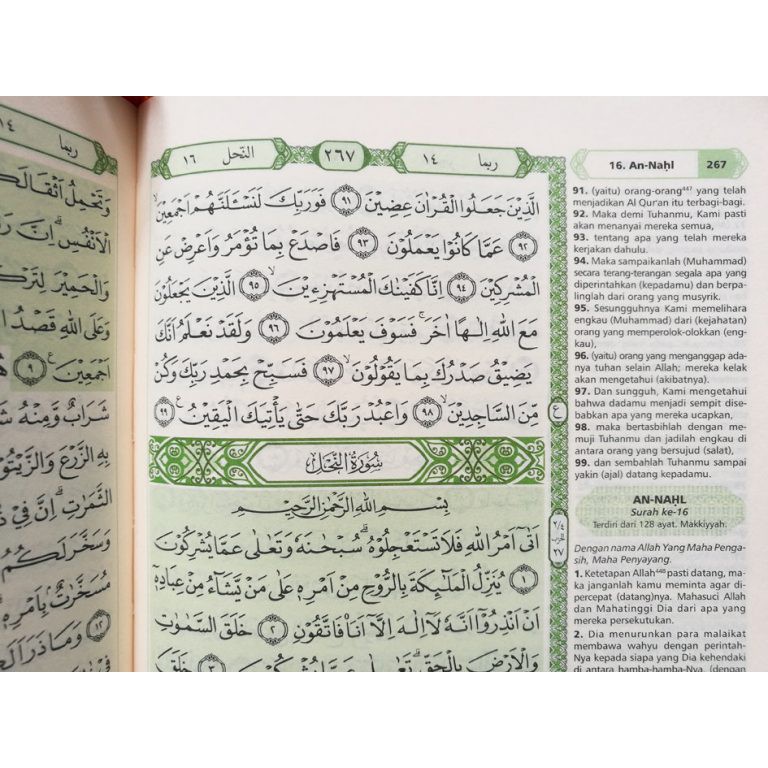 ربما ١٤ ٢٦٧ النحل ١٦
الَّذِيْنَ جَعَلُوا الْقُرْاٰنَ عِضِيْنَ ٩١ فَوَرَبِّكَ لَنَسْـَٔلَنَّهُمْ اَجْمَعِيْنَۙ
٩٢ عَمَّا كَانُوْا يَعْمَلُوْنَ ٩٣ فَاصْدَعْ بِمَا تُؤْمَرُ وَاَعْرِضْ عَنِ
الْمُشْرِكِيْنَ ٩٤ اِنَّا كَفَيْنٰكَ الْمُسْتَهْزِءِيْنَۙ ٩٥ الَّذِيْنَ يَجْعَلُوْنَ
مَعَ اللّٰهِ اِلٰهًا اٰخَرَۚ فَسَوْفَ يَعْلَمُوْنَ ٩٦ وَلَقَدْ نَعْلَمُ اَنَّكَ
يَضِيْقُ صَدْرُكَ بِمَا يَقُوْلُوْنَۙ ٩٧ فَسَبِّحْ بِحَمْدِ رَبِّكَ وَكُنْ
مِّنَ السّٰجِدِيْنَۙ ٩٨ وَاعْبُدْ رَبَّكَ حَتّٰى يَأْتِيَكَ الْيَقِيْنُ ࣖ ٩٩
سُوْرَةُ النَّحْلِ
بِسْمِ اللّٰهِ الرَّحْمٰنِ الرَّحِيْمِ
اَتٰىٓ اَمْرُ اللّٰهِ فَلَا تَسْتَعْجِلُوْهُۗ سُبْحٰنَهٗ وَتَعٰلٰى عَمَّا يُشْرِكُوْنَ
١ يُنَزِّلُ الْمَلٰۤىِٕكَةَ بِالرُّوْحِ مِنْ اَمْرِهٖ عَلٰى مَنْ يَّشَاۤءُ مِنْ عِبَادِهٖٓ
اَنْ اَنْذِرُوْٓا اَنَّهٗ لَآ اِلٰهَ اِلَّآ اَنَا۠ فَاتَّقُوْنِ ٢ خَلَقَ السَّمٰوٰتِ
وَالْاَرْضَ بِالْحَقِّۗ تَعٰلٰى عَمَّا يُشْرِكُوْنَ ٣ خَلَقَ
ع
٢/٤
الحزب
٢٧
16. An-Naḥl 267
91. (yaitu) orang-orang⁴⁴⁷ yang telah
menjadikan Al Qur'an itu terbagi-bagi.
92. Maka demi Tuhanmu, Kami pasti
akan menanyai mereka semua,
93. tentang apa yang telah mereka
kerjakan dahulu.
94. Maka sampaikanlah (Muhammad)
secara terang-terangan segala apa yang
diperintahkan (kepadamu) dan berpa-
linglah dari orang yang musyrik.
95. Sesungguhnya Kami memelihara
engkau (Muhammad) dari (kejahatan)
orang yang memperolok-olokkan (eng-
kau),
96. (yaitu) orang yang menganggap ada-
nya tuhan selain Allah; mereka kelak
akan mengetahui (akibatnya).
97. Dan sungguh, Kami mengetahui
bahwa dadamu menjadi sempit dise-
babkan apa yang mereka ucapkan,
98. maka bertasbihlah dengan me-
muji Tuhanmu dan jadilah engkau di
antara orang yang bersujud (salat),
99. dan sembahlah Tuhanmu sampai
yakin (ajal) datang kepadamu.
AN-NAḤL
Surah ke-16
Terdiri dari 128 ayat. Makkiyyah.
Dengan nama Allah Yang Maha Penga-
sih, Maha Penyayang.
1. Ketetapan Allah⁴⁴⁸ pasti datang, ma-
ka janganlah kamu meminta agar di-
percepat (datang)nya. Mahasuci Allah
dan Mahatinggi Dia dari apa yang
mereka persekutukan.
2. Dia menurunkan para malaikat
membawa wahyu dengan perintah-
Nya kepada siapa yang Dia kehendaki
di antara hamba-hamba-Nya, (dengan
ربما ١٤
وَتَحْمِلُ اَثْقَالَكُ
الْاَنْفُسِۗ اِنَّ
وَالْحَمِيْرَ لِتَرْكَ
وَعَلَى اللّٰهِ قَصْدُ
اَجْمَعِيْنَ ࣖ ٩
شَرَابٌ وَّمِنْهُ
بِهِ الزَّرْعَ وَالزَّيْتُوْ
الثَّمَرٰتِۗ اِنَّ فِيْ
وَسَخَّرَ لَكُمُ
مُسَخَّرٰتٌۢ بِاَمْرِهٖۗ
١٢ وَمَا ذَرَاَ